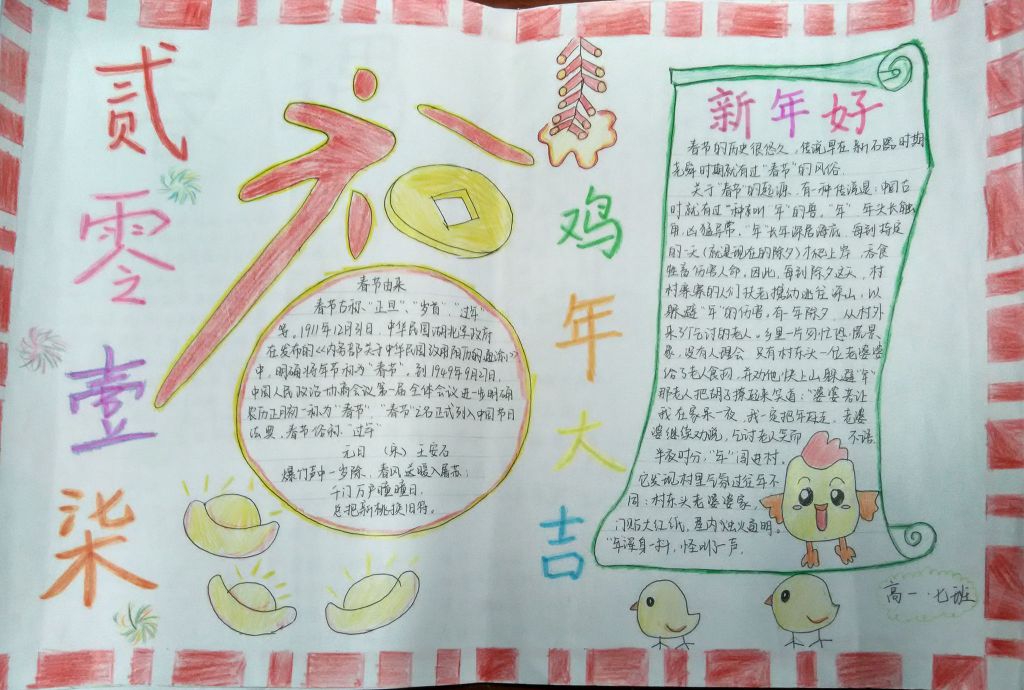 贰
零
壹
柒
福
春节由来
春节古称“正旦”、“岁首”、“过年”
等。1911年12月31日,中华民国湖北军政府
在发布的《内务部关于中华民国改用阳历的通谕》
中,明确将年节称为“春节”。到1949年9月27日,
中国人民政治协商会议第一届全体会议进一步明确
农历正月初一称为“春节”,“春节”之名正式列入中国节日
法典。春节俗称“过年”
元日 (宋) 王安石
爆竹声中一岁除,春风送暖入屠苏;
千门万户曈曈日,
总把新桃换旧符。
鸡
年
大
吉
新年好
春节的历史很悠久,传说早在新石器时期
尧舜时期就有过“春节”的风俗.
关于“春节”的起源,有一种传说是:中国古
时就有过一种叫“年”的兽。“年”
角,凶猛异常。“年”长年深居海底,每到特定
的一天(就是现在的除夕)才爬上岸,吞食
牲畜伤害人命,因此,每到除夕这天,村
村寨寨的人们扶老携幼逃往深山,以
躲避“年”的伤害,有一年除夕,从村外
来了个乞讨的老人。乡里一片匆忙恐慌景
象,没有人理会,只有村东头一位老婆婆
给了老人食物,并劝他快上山躲避“年”
那老人把胡子撩起来笑道:“婆婆若让
我在家呆一夜,我一定把年
婆继续劝说,乞讨老人笑而 不语.
半夜时分,“年”闯进村。
它发现村里气氛过往年不
同:村东头老婆婆家,
门贴大红纸,屋内烛火通明。
“年”浑身一抖,怪叫了一声。
高一·七班